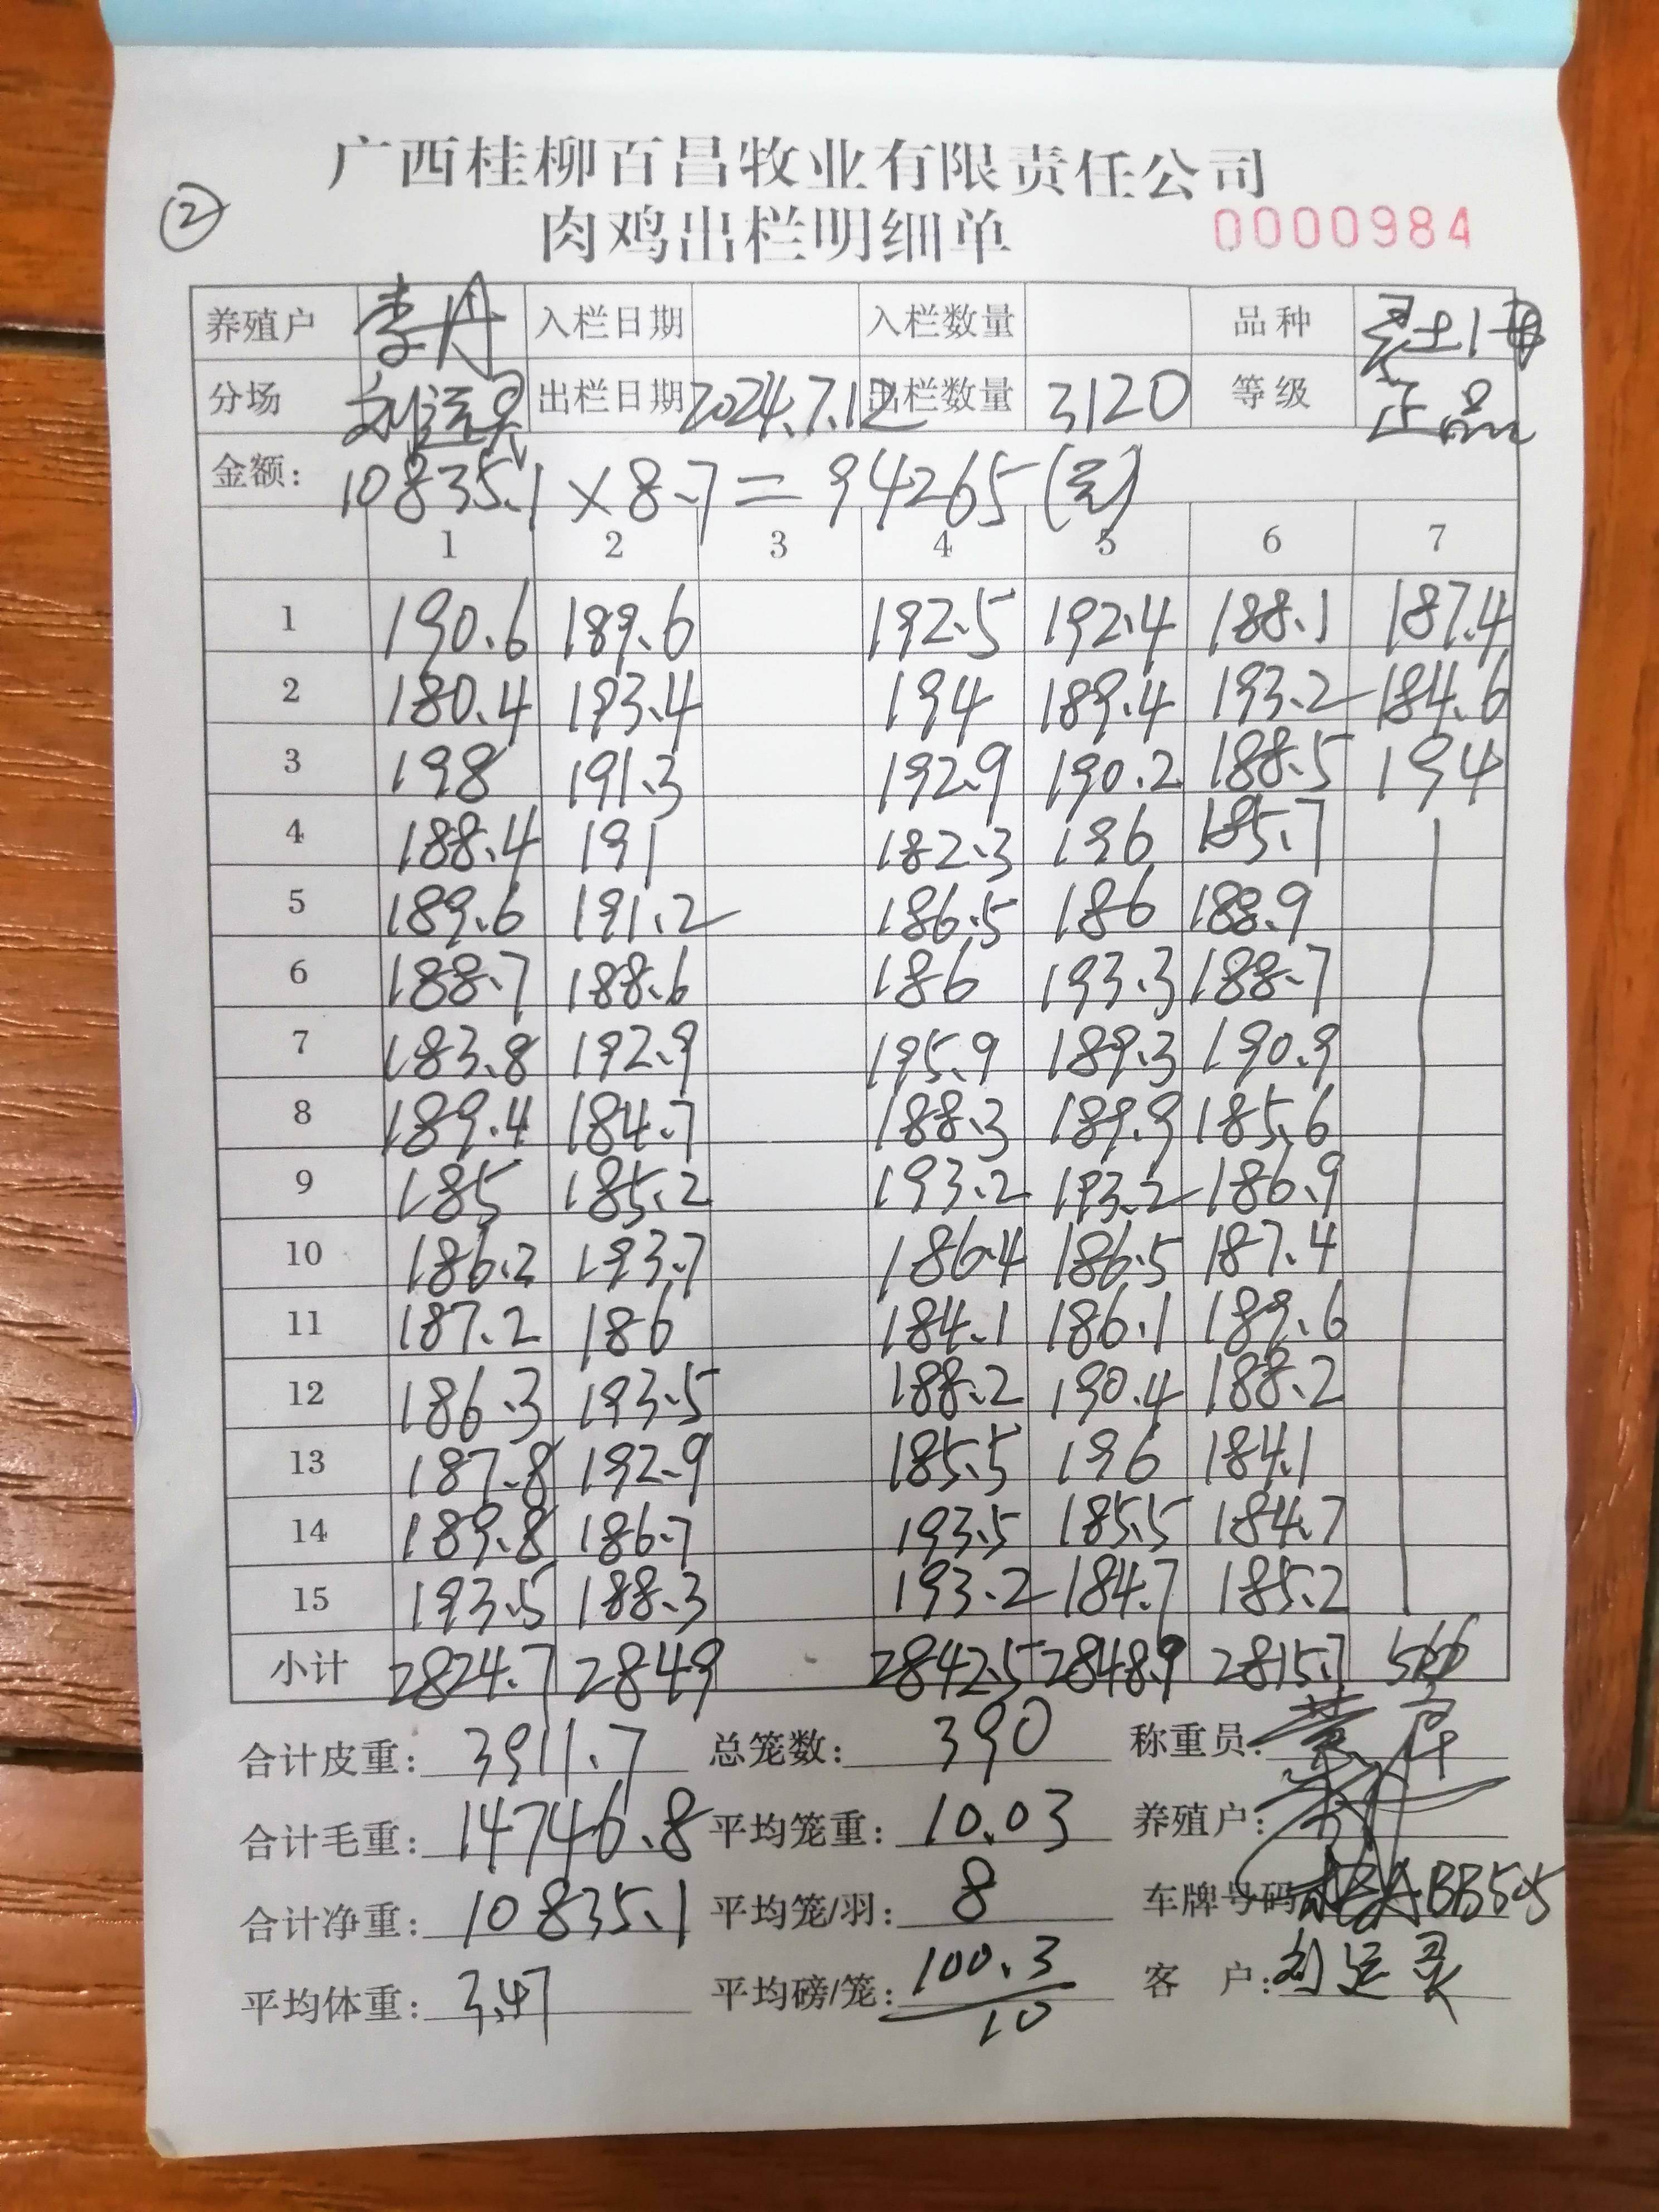 ②
广西桂柳百昌牧业有限责任公司
肉鸡出栏明细单 0000984
养殖户 李丹 入栏日期 入栏数量 品种 灵土1母
分场 刘运灵 出栏日期 2024.7.12 出栏数量 3120 等级 正品
金额: 10835.1×8.7=94265(元)
1 2 3 4 5 6 7
1 190.6 189.6 192.5 192.4 188.1 187.4
2 180.4 193.4 194 189.4 193.2 184.6
3 198 191.3 192.9 190.2 188.5 194
4 188.4 191 182.3 196 185.7
5 189.6 191.2 186.5 186 188.9
6 188.7 188.6 186 193.3 188.7
7 183.8 192.9 195.9 189.3 190.9
8 189.4 184.7 188.3 189.9 185.6
9 185 185.2 193.2 193.2 186.9
10 186.2 193.7 186.4 186.5 187.4
11 187.2 186 184.1 186.1 189.6
12 186.3 193.5 188.2 190.4 188.2
13 187.8 192.9 185.5 196 184.1
14 189.8 186.7 193.5 185.5 184.7
15 193.5 188.3 193.2 184.7 185.2
小计 2824.7 2849 2842.5 2848.9 2815.7 566
合计皮重: 3911.7 总笼数: 390 称重员:
合计毛重: 14746.8 平均笼重: 10.03 养殖户:
合计净重: 10835.1 平均笼/羽: 8 车牌号码 ABB505
平均体重: 3.47 平均磅/笼: 100.3/10 客 户: 刘运灵